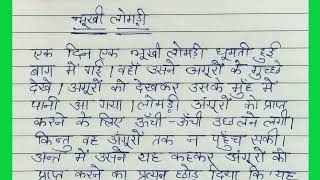 भूखी लोमड़ी
एक दिन एक भूखी लोमड़ी घूमती हुई
बाग में गई। वहाँ उसने अंगूरों के गुच्छे
देखे। अंगूरों को देखकर उसके मुँह में
पानी आ गया। लोमड़ी अंगूरों को प्राप्त
करने के लिए ऊँची-ऊँची उछलने लगी।
किन्तु वह अंगूरों तक न पहुँच सकी।
अन्त में उसने यह कहकर अंगूरों को
प्राप्त करने का प्रयत्न छोड़ दिया कि 'यह